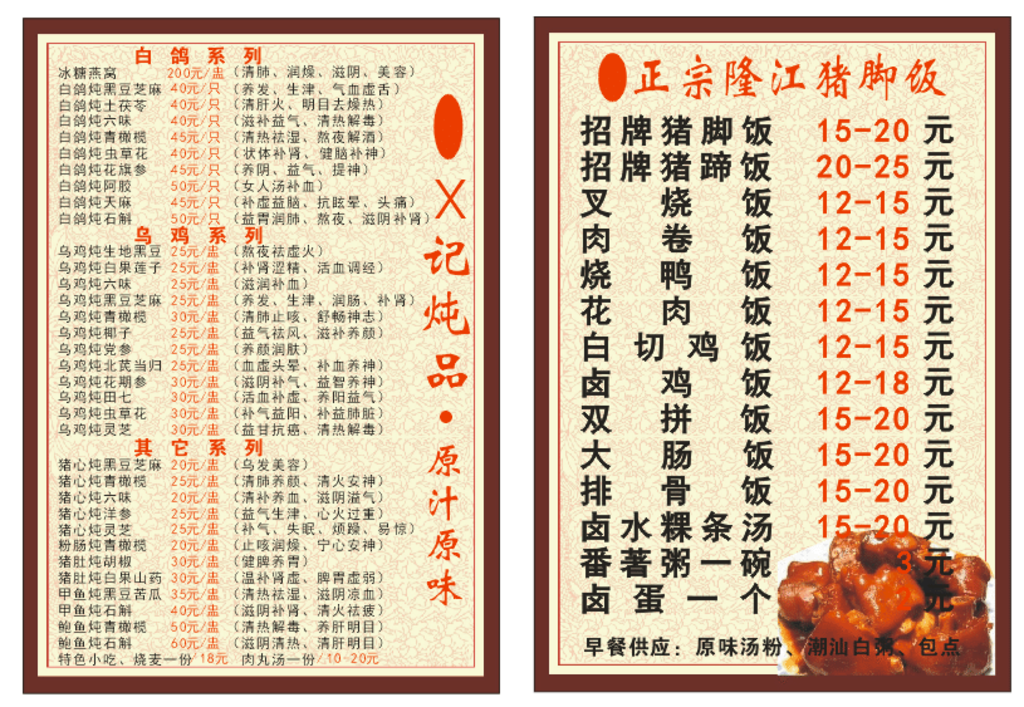 白鸽系列
冰糖燕窝 200元/盅 (清肺、润燥、滋阴、美容)
白鸽炖黑豆芝麻 40元/只 (养发、生津、气血虚舌)
白鸽炖土茯苓 40元/只 (清肝火、明目去燥热)
白鸽炖六味 40元/只 (滋补益气、清热解毒)
白鸽炖青橄榄 45元/只 (清热祛湿、熬夜解酒)
白鸽炖虫草花 40元/只 (状体补肾、健脑补神)
白鸽炖花旗参 45元/只 (养阴、益气、提神)
白鸽炖阿胶 50元/只 (女人汤补血)
白鸽炖天麻 45元/只 (补虚益脑、抗眩晕、头痛)
白鸽炖石斛 50元/只 (益胃润肺、熬夜、滋阴补肾)
乌鸡系列
乌鸡炖生地黑豆 25元/盅 (熬夜祛虚火)
乌鸡炖白果莲子 25元/盅 (补肾涩精、活血调经)
乌鸡炖六味 25元/盅 (滋润补血)
乌鸡炖黑豆芝麻 25元/盅 (养发、生津、润肠、补肾)
乌鸡炖青橄榄 30元/盅 (清肺止咳、舒畅神志)
乌鸡炖椰子 25元/盅 (益气祛风、滋补养颜)
乌鸡炖党参 25元/盅 (养颜润肤)
乌鸡炖北芪当归 25元/盅 (血虚头晕、补血养神)
乌鸡炖花期参 30元/盅 (滋阴补气、益智养神)
乌鸡炖田七 30元/盅 (活血补虚、养阳益气)
乌鸡炖虫草花 30元/盅 (补气益阳、补益肺脏)
乌鸡炖灵芝 30元/盅 (益甘抗癌、清热解毒)
其它系列
猪心炖黑豆芝麻 20元/盅 (乌发美容)
猪心炖青橄榄 25元/盅 (清肺养颜、清火安神)
猪心炖六味 20元/盅 (清补养血、滋阴溢气)
猪心炖洋参 25元/盅 (益气生津、心火过重)
猪心炖灵芝 25元/盅 (补气、失眠、烦躁、易惊)
粉肠炖青橄榄 20元/盅 (止咳润燥、宁心安神)
猪肚炖胡椒 30元/盅 (健脾养胃)
猪肚炖白果山药 30元/盅 (温补肾虚、脾胃虚弱)
甲鱼炖黑豆苦瓜 35元/盅 (清热祛湿、滋阴凉血)
甲鱼炖石斛 40元/盅 (滋阴补肾、清火祛疲)
鲍鱼炖青橄榄 50元/盅 (清热解毒、养肝明目)
鲍鱼炖石斛 60元/盅 (滋阴清热、清肝明目)
特色小吃、烧麦一份/18元 肉丸汤一份/10-20元
X记炖品·原汁原味
正宗隆江猪脚饭
招牌猪脚饭 15-20 元
招牌猪蹄饭 20-25 元
叉烧饭 12-15 元
肉卷饭 12-15 元
烧鸭饭 12-15 元
花肉饭 12-15 元
白切鸡饭 12-15 元
卤鸡饭 12-18 元
双拼饭 15-20 元
大肠饭 15-20 元
排骨饭 15-20 元
卤水粿条汤 15-20 元
番薯粥一碗 3 元
卤蛋一个 元
早餐供应: 原味汤粉、潮汕白粥、包点